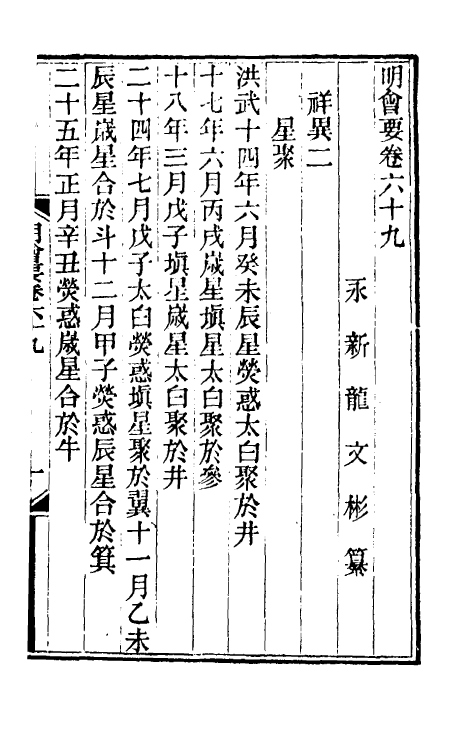 明會要卷六十九
永新龍文彬纂
祥異二
星聚
洪武十四年六月癸未辰星熒惑太白聚於井
十七年六月丙戌歲星塡星太白聚於參
十八年三月戊子塡星歲星太白聚於井
二十四年七月戊子太白熒惑塡星聚於翼十一月乙未
辰星歲星合於斗十二月甲子熒惑辰星合於箕
二十五年正月辛丑熒惑歲星合於牛
明會要卷六十九